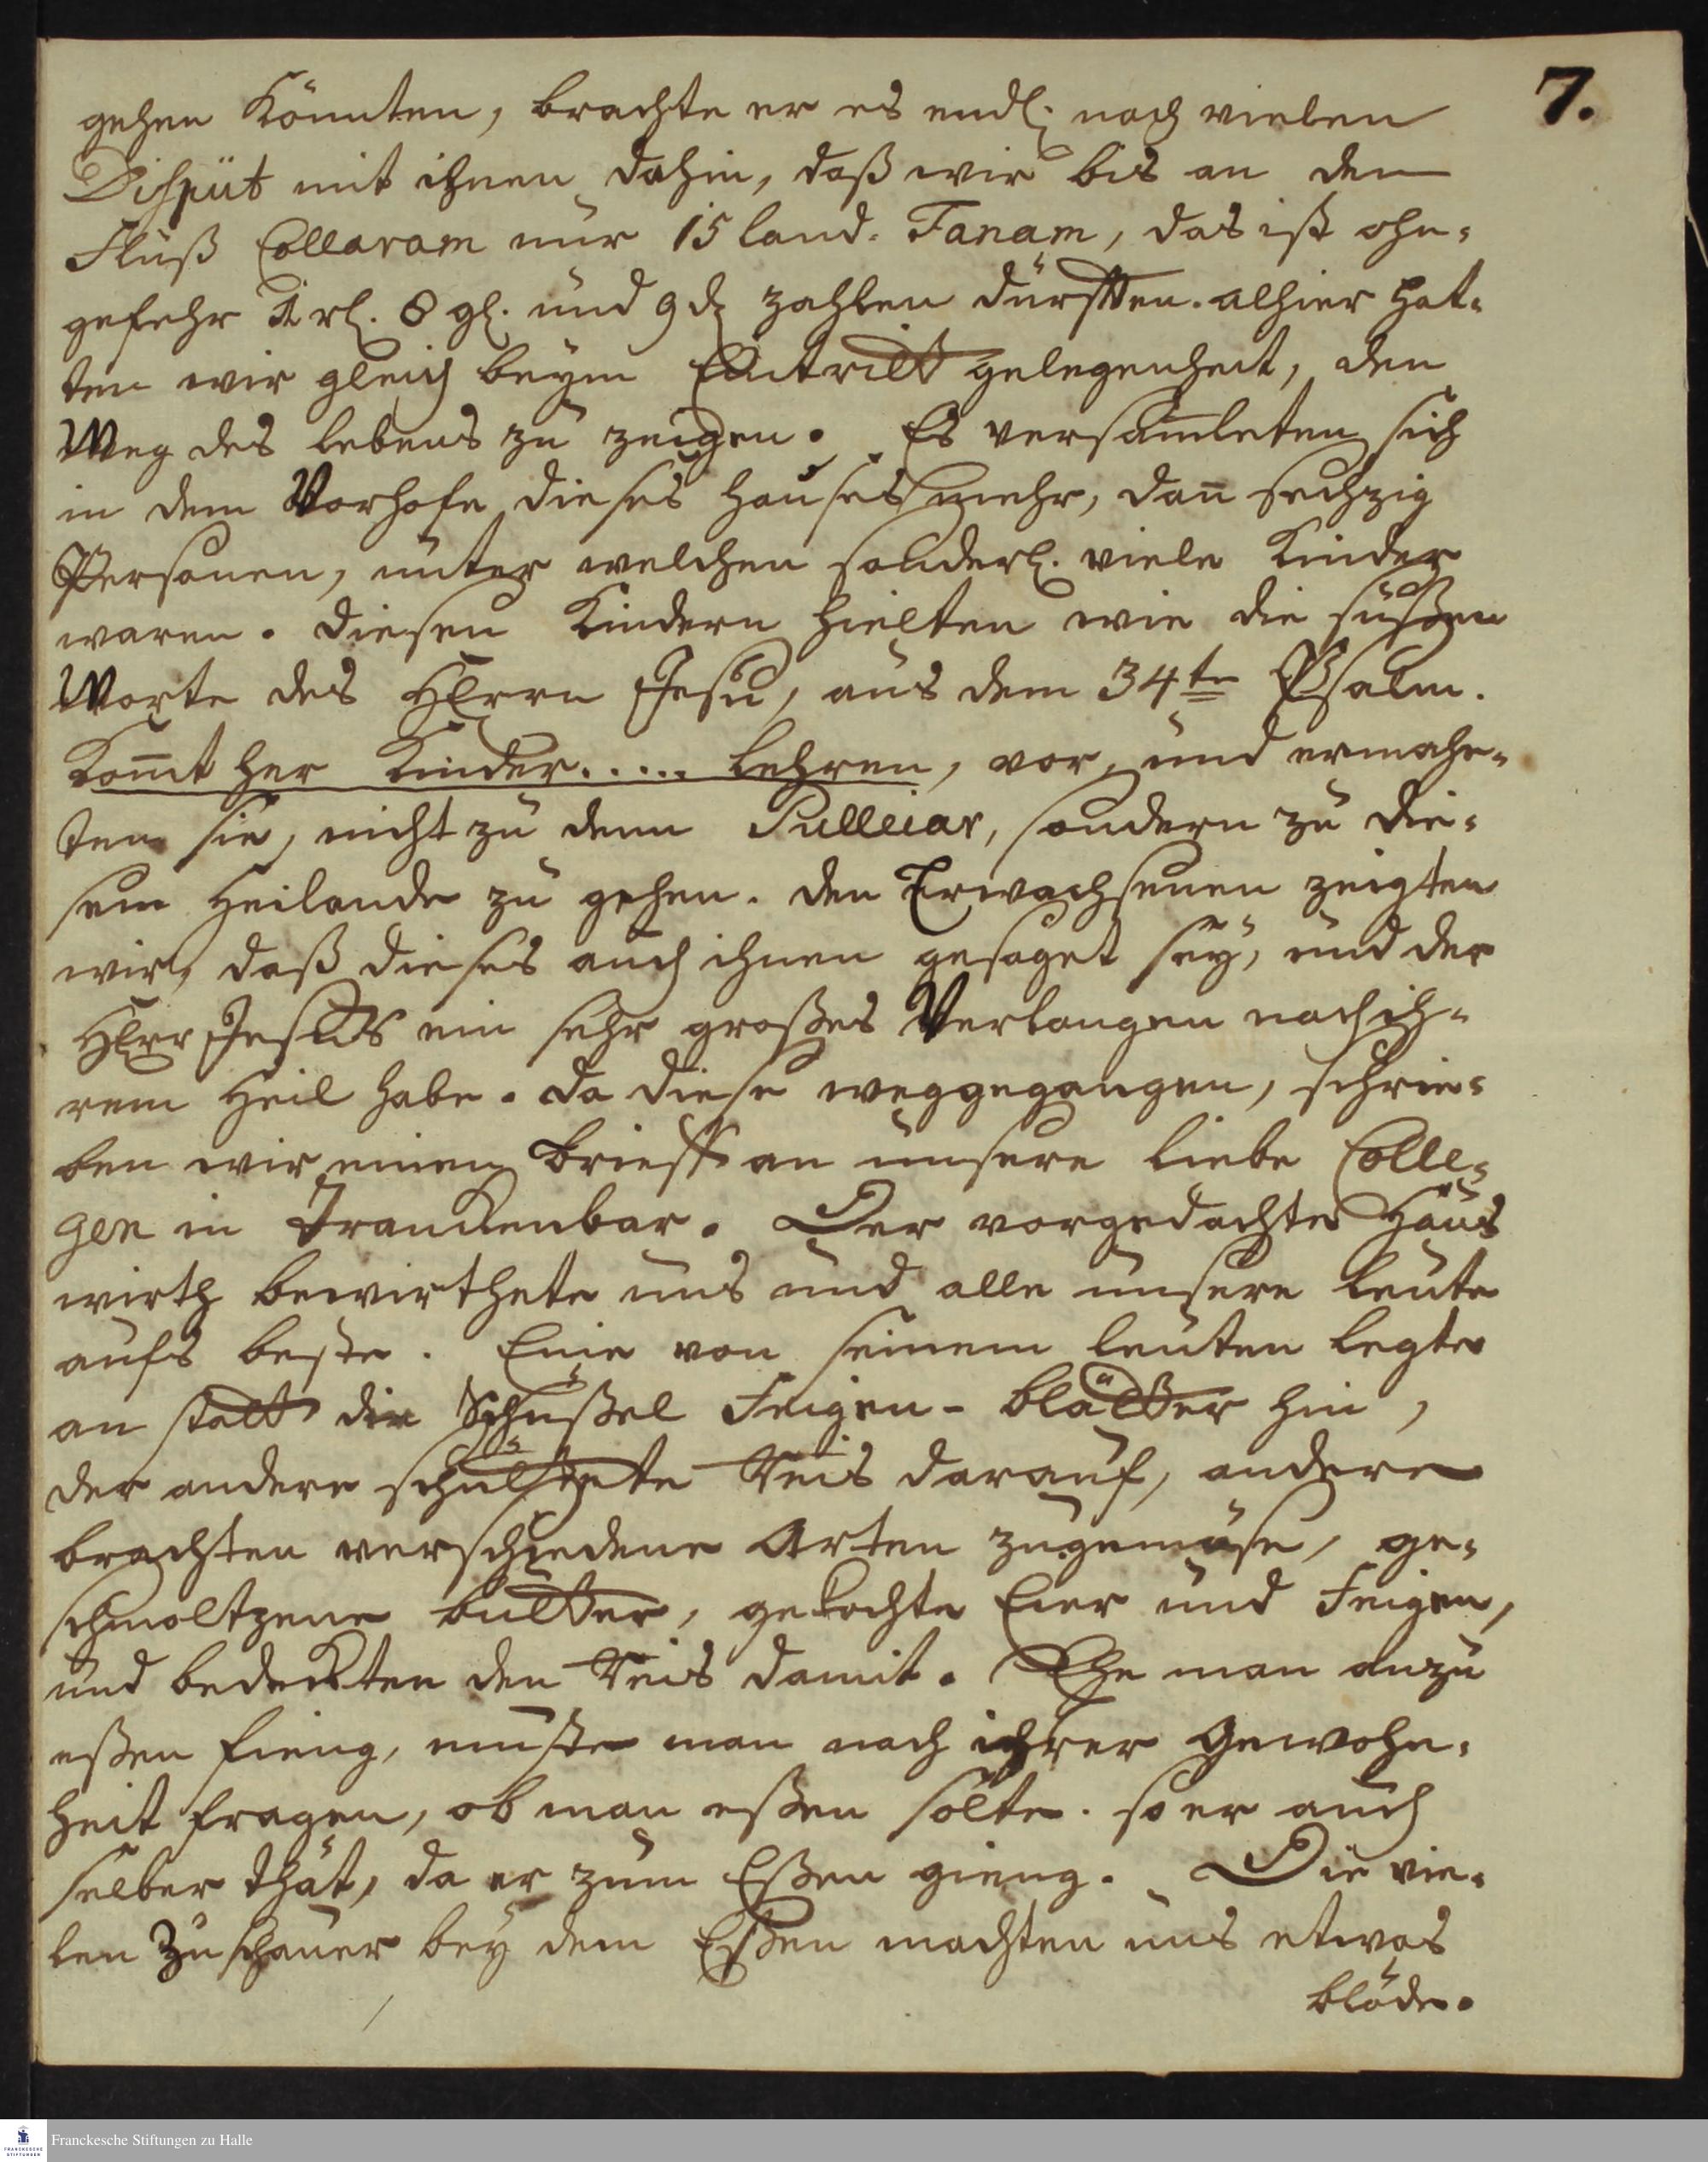 7.
gehen könnten, brachte er es endl. nach vielen
Dispüt mit ihnen dahin, daß wir bis an den
Fluß Collaram nur 15 land. Fanam, das ist ohn-
gefehr 1 rl. 8 gl. und 9 d. zahlen dürfften. Alhier hat-
ten wir gleich beym Eintritt gelegenheit, den
Weg des lebens zu zeigen. Es versam̅leten sich
in dem Vorhofe dieses Hauses mehr, dan̅ sechzig
Personen, unter welchen sonderl. viele Kinder
waren. Diesen Kindern hielten wir die süßen
Worte des HErrn Jesu, aus dem 34ten Psalm.
Kom̅t her Kinder..... lehren, vor, und ermahn-
ten sie, nicht zu dem Pulleiar, sondern zu die-
sem Heilande zu gehen. Den Erwachsenen zeigten
wir, daß dieses auch ihnen gesaget sey, und der
HErr Jesus ein sehr großes Verlangen nach ih-
rem Heil habe. Da diese weggegangen, schrie-
ben wir einen Brieff an unsere liebe Colle-
gen in Tranckenbar. Der vorgedachte Haus
wirth bewirthete uns und alle unsere Leute
aufs beste. Einer von seinen leuten legte
an statt der Schüßel Feigen-blätter hin,
der andere schüttete Reis darauf, andere
brachten verschiedene Arten zugemüse, ge-
schmoltzene butter, gekochte Eier und Feigen,
und bedeckten den Reis damit. Ehe man anzu
eßen fieng, muste man nach ihrer Gewohn-
heit fragen, ob man eßen solte. so er auch
selber thät, da er zum Eßen gieng. Die vie-
len Zuschauer bey dem Eßen machten uns etwas
blöde.
Franckesche Stiftungen zu Halle